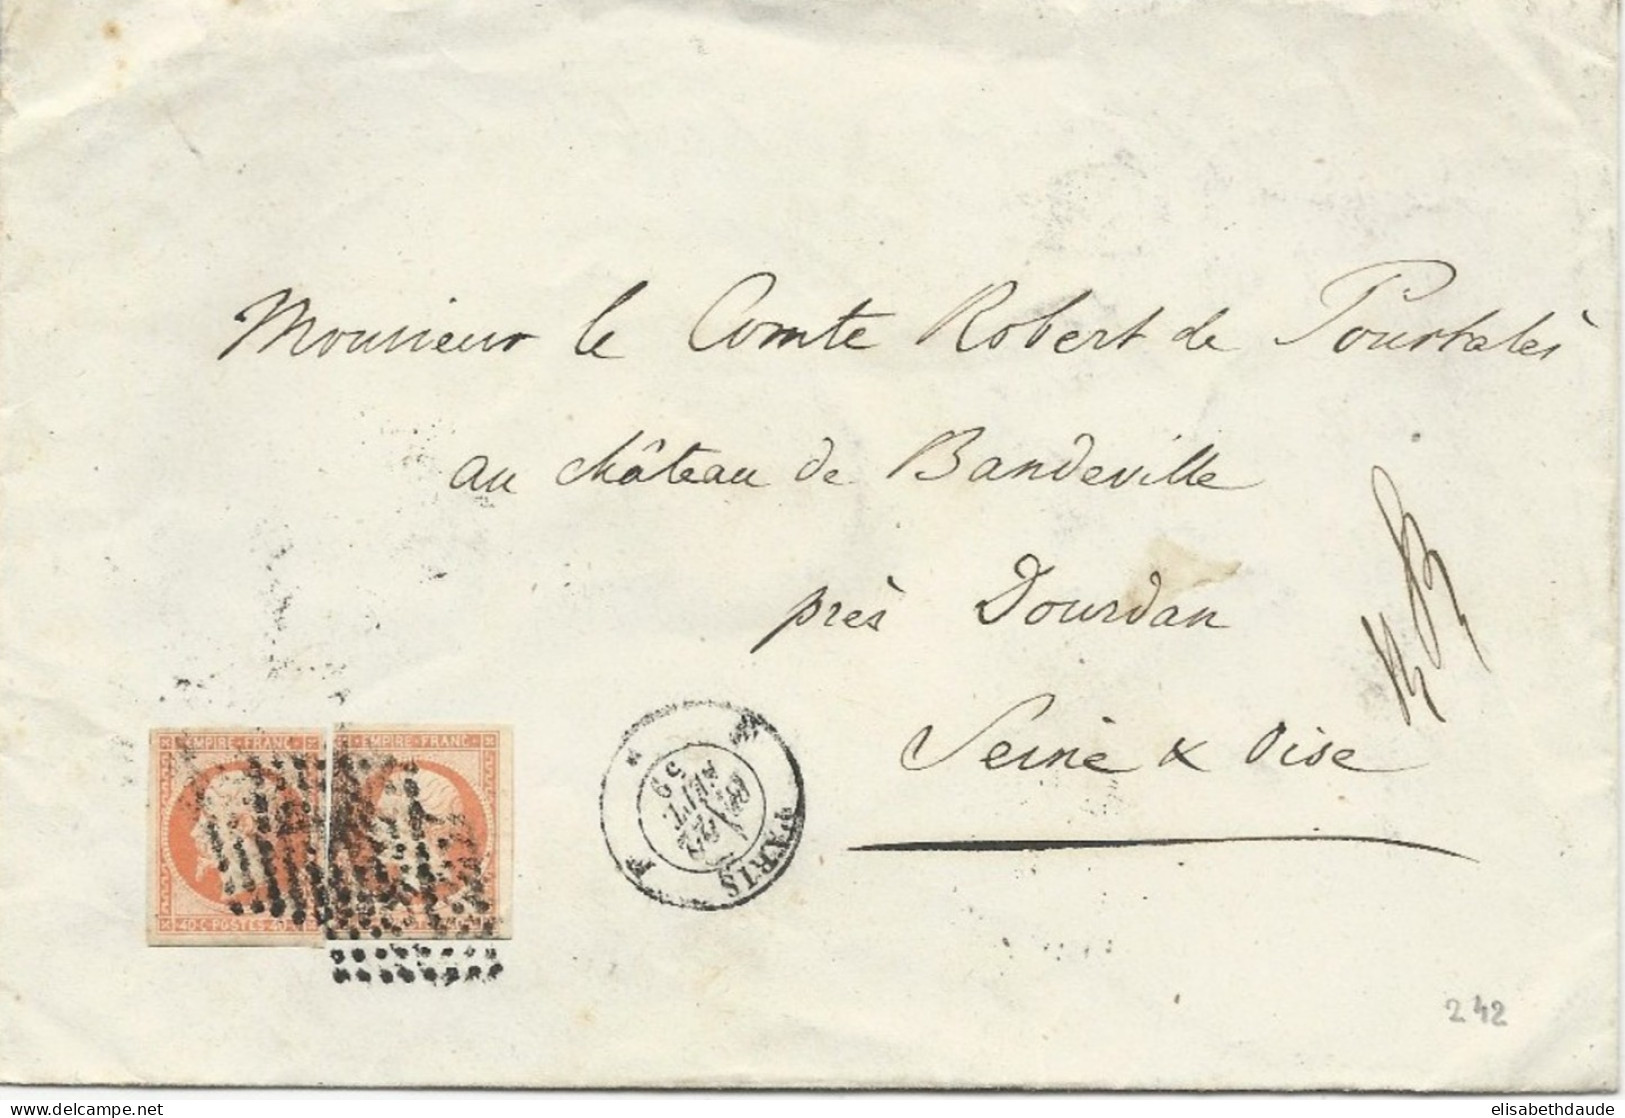 Monsieur le Comte Robert de Pourtalès
au château de Bandeville
près Dourdan
Seine & Oise
EMPIRE-FRANC.
EMPIRE-FRANC.
40·C·POSTES·40·C
PARIS
AOUT
59
242
© www.delcampe.net
elisabethdaude